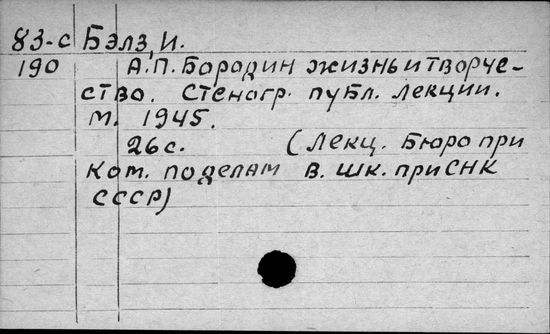 83-с Бэлз, И.
190 А.П. Бородин жизнь и творче-
ство. Стеногр. публ. лекции.
М. 1945.
26 с. (Лекц. Бюро при
Ком. по делам в. шк. при СНК
СССР)